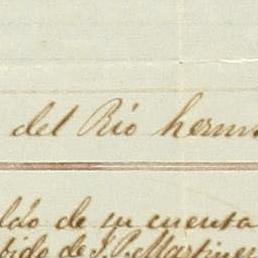 del Rio herm
ldo de su cuenta
bido de J. P. Martinez